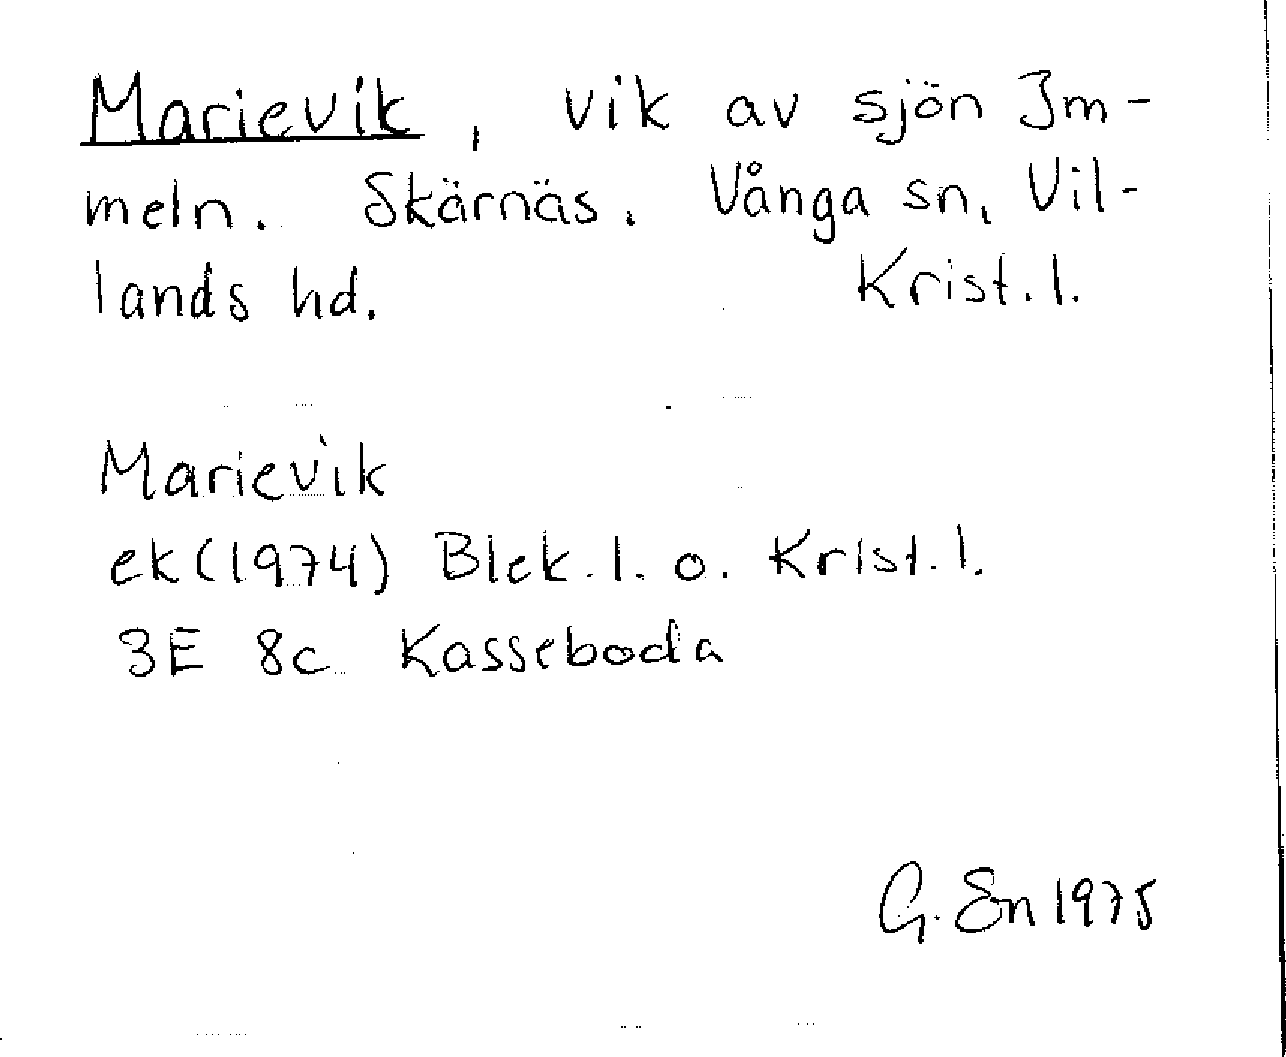 Marievik, vik av sjön Im-
meln. Skärnäs. Vånga sn, Vil-
lands hd. Krist. l.
Marievik
ek (1974) Blek. l. o. Krist. l.
3E 8c Kasseboda
G. En 1975